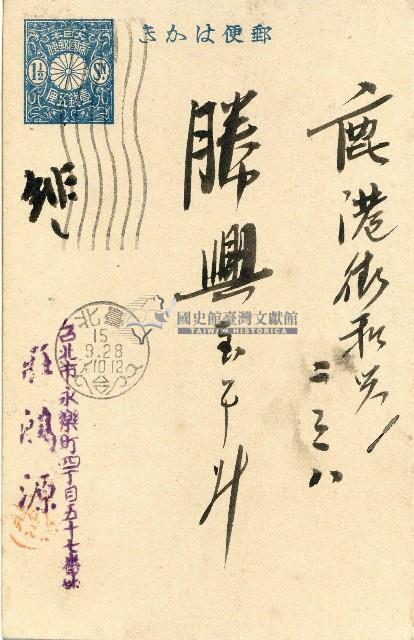 郵便はかき
大日本
帝國郵便
1½ Sn
壹錢五厘
鹿港街和興
二三八
勝興
臺北
15
9.28
后10-12
國史館臺灣文獻館
TAIWAN HISTORICA
台北市永樂町四丁目五十七番地
莊鴻源